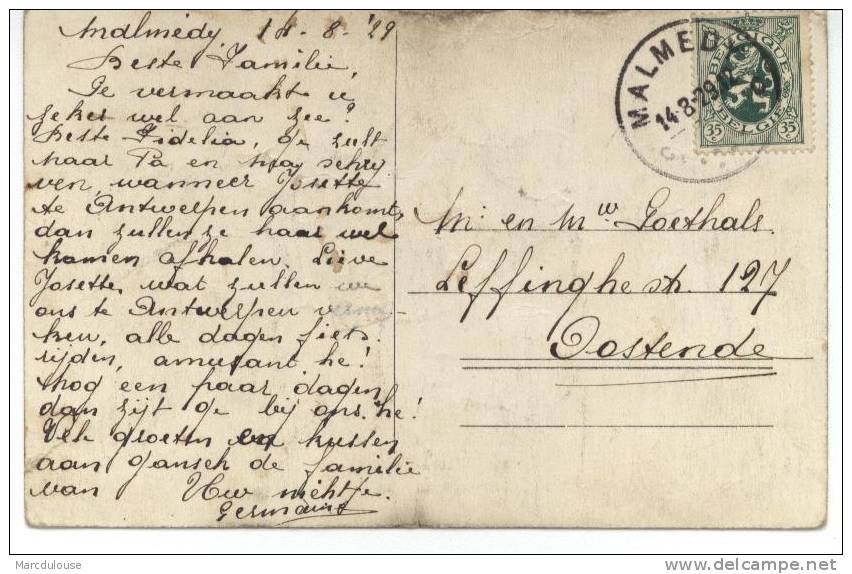 Malmédy 14-8-'29
Beste Familie,
Je vermaakt u
zeker wel aan zee?
Beste Fidelia, ge zult
naar Pa en may schrij
ven, wanneer Josette
te Antwerpen aankomt,
dan zullen ze haar wel
komen afhalen. Lieve
Josette, wat zullen we
ons te Antwerpen
ken, alle dagen fiets
rijden, amusant he!
nog een paar dagen
dan zijt ge bij ons. he!
Vele groeten en kussen
aan gansch de familie
van Uw nichtje.
Germaine
MALMEDY
14-8-29
BELGIQUE
BELGIË
35c 35c
Mr en Mw Goethals.
Leffinghestr. 127
Oostende
Marcdulouse
delcampe.net